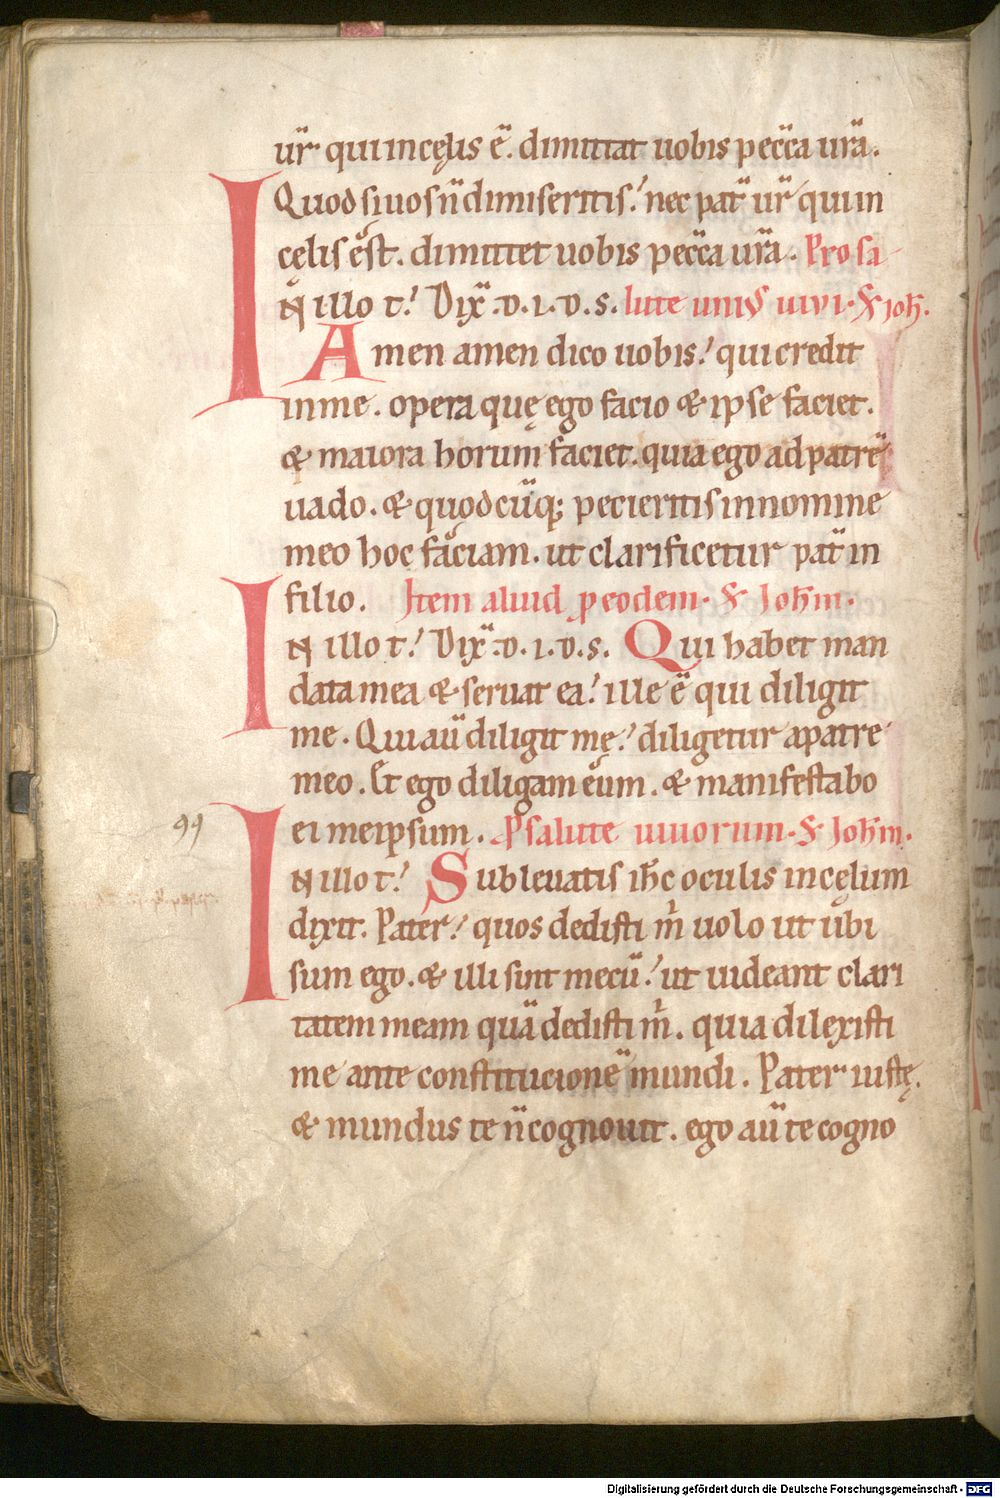 ur̄ qui in cęlis ē. dimittat uobis pecc̄a ur̄a.
Quod si uos n̄ dimiseritis! nec pat̄ ur̄ qui in
cęlis est. dimittet uobis pecc̄a ur̄a. Pro sa
IN illo t! Dix̄ .d.i.d.s. lute uniꝰ uiui. S. joh.
Amen amen dico uobis! qui credit
in me. opera quę ego facio & ipse faciet.
& maiora horum faciet. quia ego ad patrē
uado. & quodcūq; pecieritis in nomine
meo hoc faciam. ut clarificetur pat̄ in
filio. Item aliud p eodem. S. Joh̄m.
IN illo t! Dix̄ .d.i.d.s. Qui habet man
data mea & seruat ea! ille ē qui diligit
me. Qui aū diligit mę! diligetur a patre
meo. Et ego diligam eum. & manifestabo
99
ei meipsum. P salute uiuorum. S. Joh̄m.
IN illo t! Subleuatis ih̄c oculis in cęlum
dixit. Pater! quos dedisti m̄ uolo ut ubi
sum ego. & illi sint mecū! ut uideant clari
tatem meam quā dedisti m̄. quia dilexisti
me ante constitucionē mundi. Pater iustę.
& mundus te n̄ cognouit. ego aū te cogno
Digitalisierung gefördert durch die Deutsche Forschungsgemeinschaft - DFG